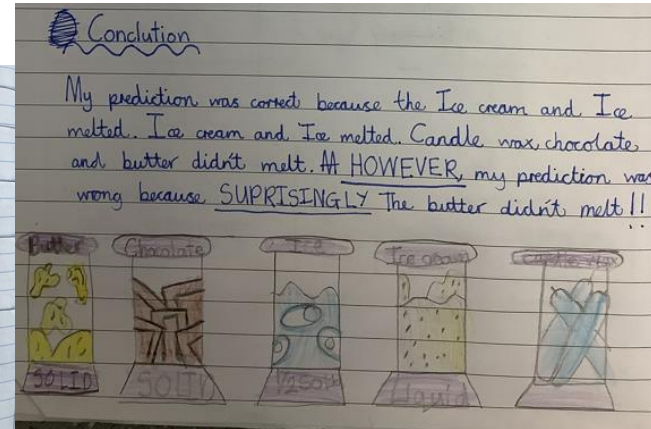 Conclution
My prediction was correct because the Ice cream and Ice
melted. Ice cream and Ice melted. Candle wax, chocolate
and butter didn't melt. AA HOWEVER, my prediction was
wrong because SUPRISINGLY The butter didn't melt!!
Butter Chocolate Ice Ice cream
SOLID SOLID 1/2 Solid Liquid